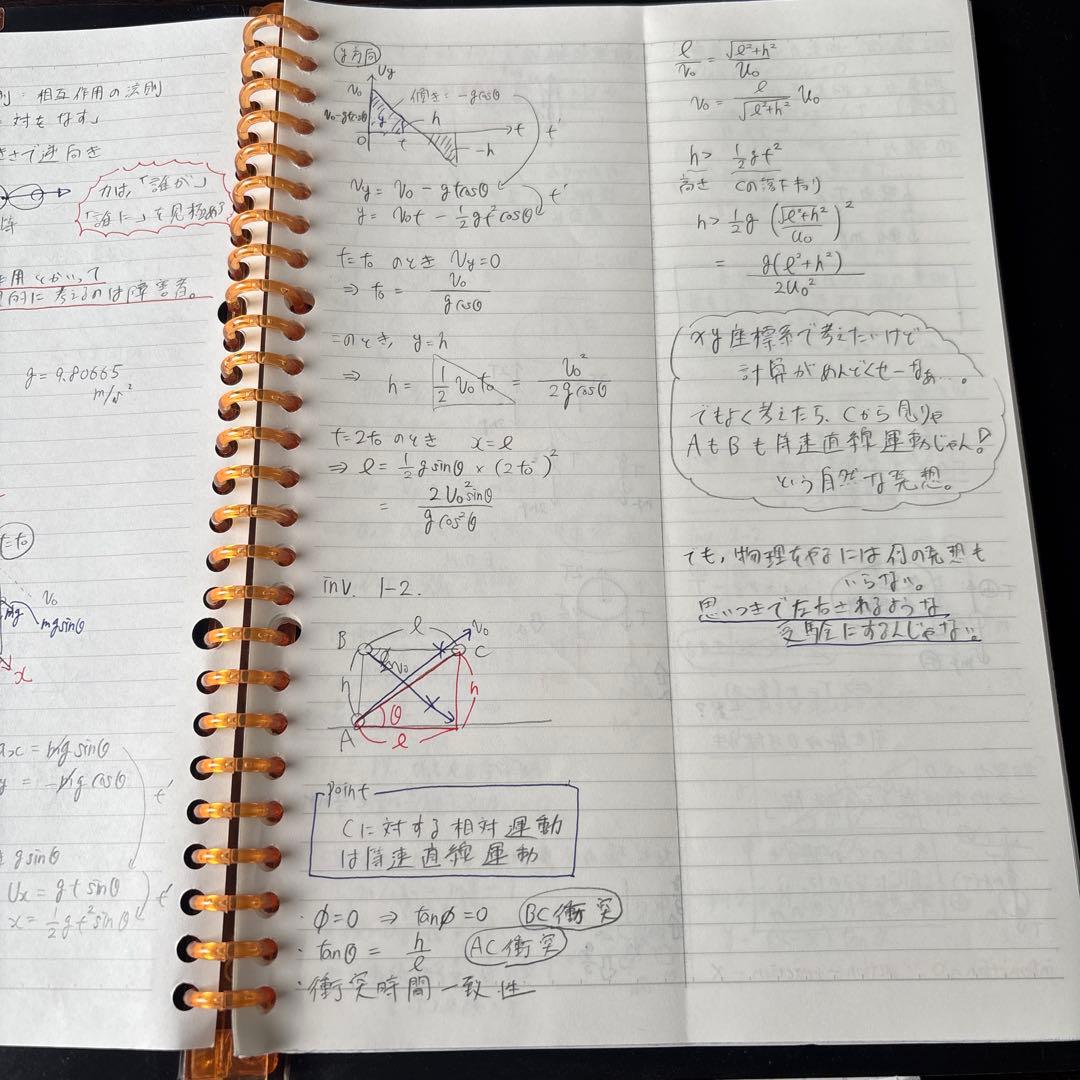 則：相互作用の法則
対をなす」
きさで逆向き
力は、「誰が」
「誰に」を見極める
用とかいって
的に考えるのは障害者。
g = 9.80665
m/s²
t=t₀
v₀
mg
mgsinθ
x
ax = mg sinθ
y = -mg cosθ
t'
g sinθ
Vx = gt sinθ
x = ½gt² sinθ
t'
y方向
Vy
v₀
傾き：-gcosθ
v₀-gtcosθ
y
h
0
t
t
-h
t'
Vy = V₀ - gtcosθ
y = V₀t - ½gt²cosθ
t'
t=t₀ のとき Vy=0
⇒ t₀ = V₀/gcosθ
このとき, y=h
⇒ h = ½ V₀ t₀ = V₀²/2gcosθ
t=2t₀ のとき x=ℓ
⇒ ℓ = ½ g sinθ × (2t₀)²
= 2V₀² sinθ/g cos²θ
inv. 1-2.
ℓ
V₀
B
φ
V₀
C
h
h
θ
A
ℓ
point
Cに対する相対運動
は等速直線運動
・φ=0 ⇒ tanφ=0 BC衝突
・tanθ = h/ℓ AC衝突
・衝突時間一致性
ℓ/v₀ = √ℓ²+h²/u₀
v₀ = ℓ/√ℓ²+h² u₀
h > ½gt²
高さ Cの落下
h > ½g (√ℓ²+h²/u₀)²
= g(ℓ²+h²)/2u₀²
xy座標系で考えたいけど
計算がめんどくせーなぁ…。
でもよく考えたら、Cから見りゃ
AもBも等速直線運動じゃん！
という自然な発想。
でも，物理をやるには何の発想も
いらない。
思いつきで左右されるような
受験にするんじゃない。